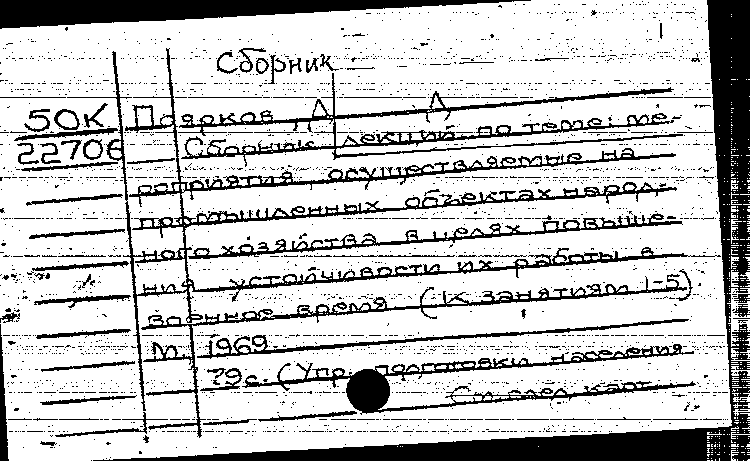 Сборник
50К Поярков, Д. Д.
22706 Сборник лекций по теме: ме-
роприятия, осуществляемые на
промышленных объектах народ-
ного хозяйства в целях повыше-
ния устойчивости их работы в
военное время (К занятиям 1-5).
М. 1969.
79с. (Упр. подготовки населения
См. след. карт.